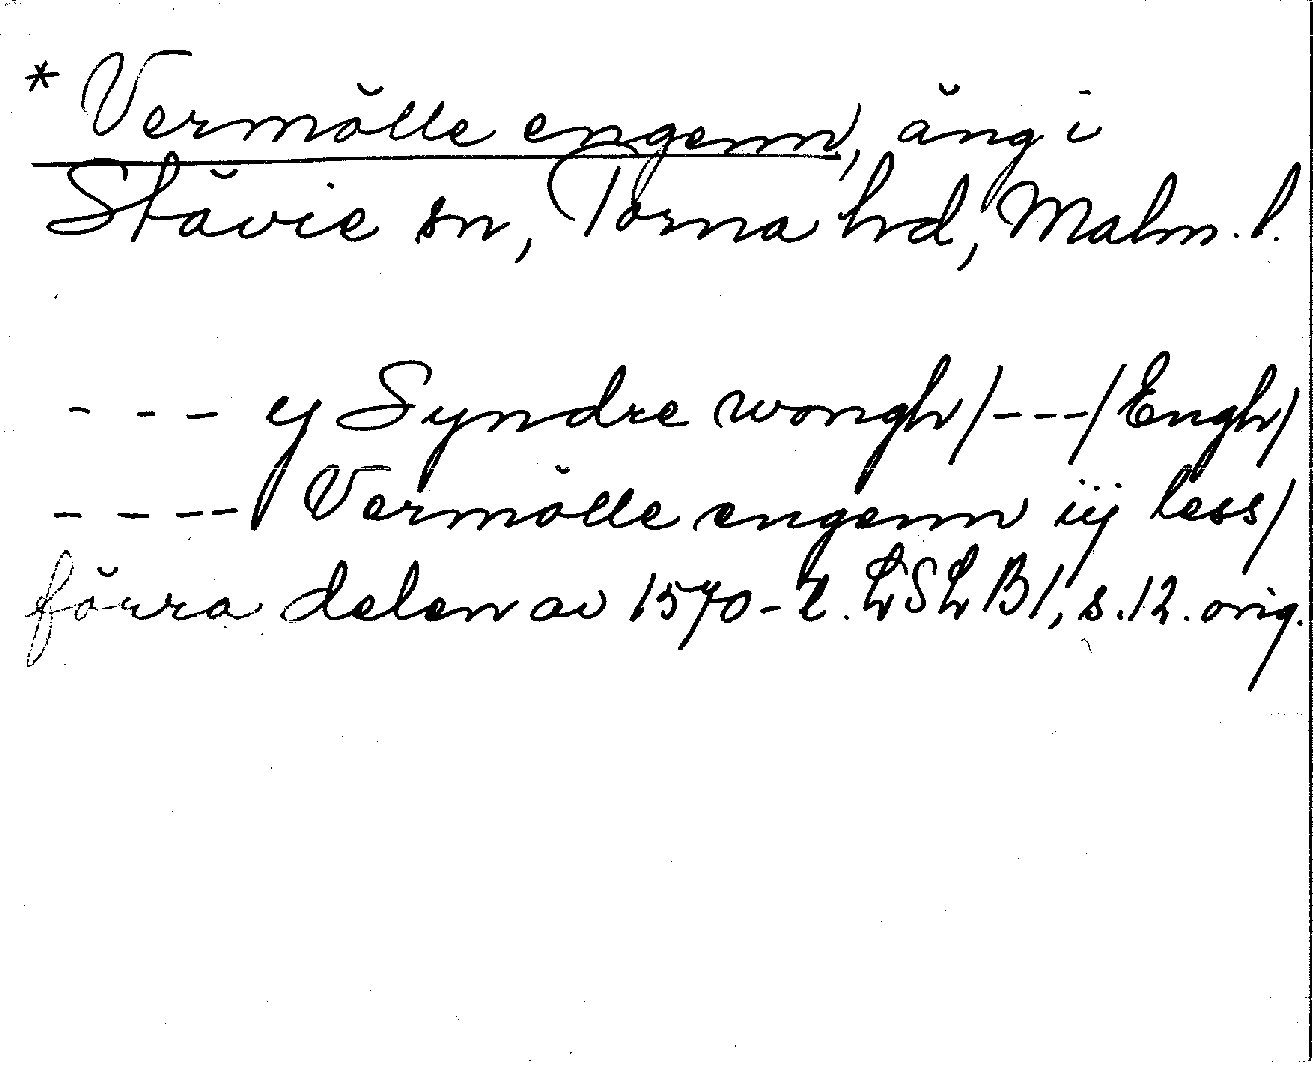 * Vermölle engenn, äng i
Stävie sn, Torna hd, Malm. l.
- - - ej Syndre wongh/---/Engh/
- - - - / Vermölle engenn iij less/
förra delen av 1570-t. LSLB 1, s. 12. orig.